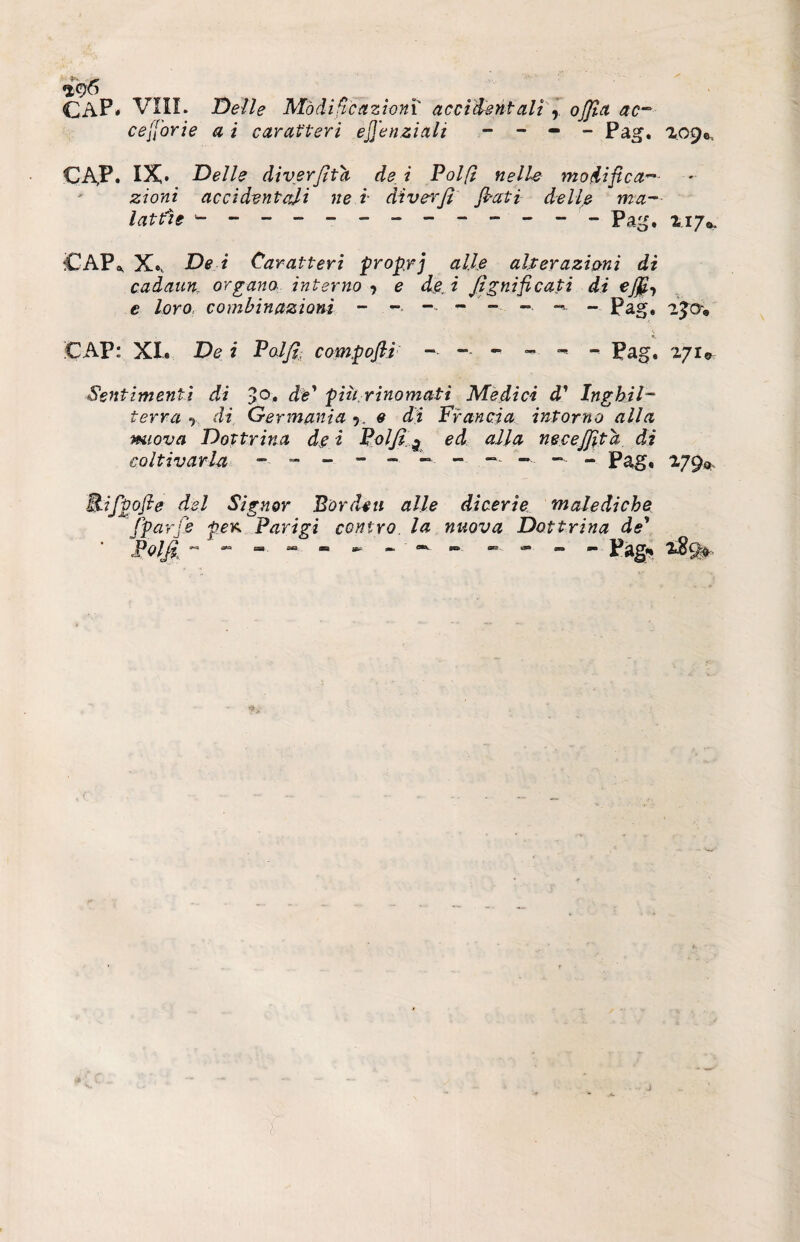 296
CAP. VIII. Delle Modificazioni accidentali, oſſia ac-
ceſſorie a i caratteri eſſenziali - - - - Pag. 209.
CAP. IX. Delle diverſità de i Polſi nelle modifica-
zioni accidentali ne i diverſi ſtati delle ma-
lattie - - - - - - - - - - - - - - Pag. 217.
CAP. X. De i Caratteri proprj alle alterazioni di
cadaun organo interno, e de i ſignificati di eſſi,
e loro combinazioni - - - - - - - - Pag. 230.
CAP: XI. De i Polſi compoſti - - - - - - Pag. 271.
Sentimenti di 30. de' più rinomati Medici d' Inghil-
terra, di Germania, e di Francia intorno alla
nuova Dottrina de i Polſi, ed alla neceſſità di
coltivarla - - - - - - - - - - - - Pag. 279.
Riſpoſte del Signor Bordeu alle dicerie malediche
ſparſe per Parigi contro la nuova Dottrina de'
Polſi - - - - - - - - - - - - - - Pag. 289.